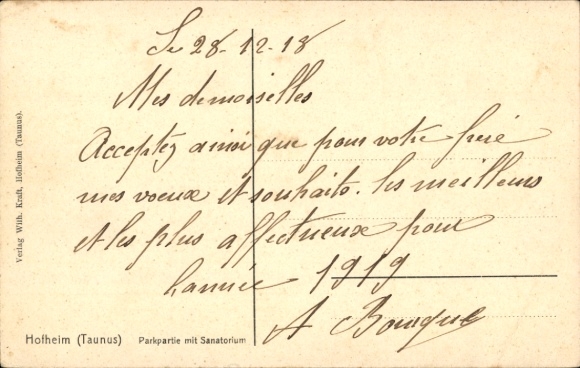 Le 28-12-18
Mes demoiselles
Acceptez ainsi que pour votre frère
mes voeux et souhaits. les meilleurs
et les plus affectueux pour
l'année 1919
A
Hofheim (Taunus) Parkpartie mit Sanatorium
Verlag Wilh. Kraft, Hofheim (Taunus).